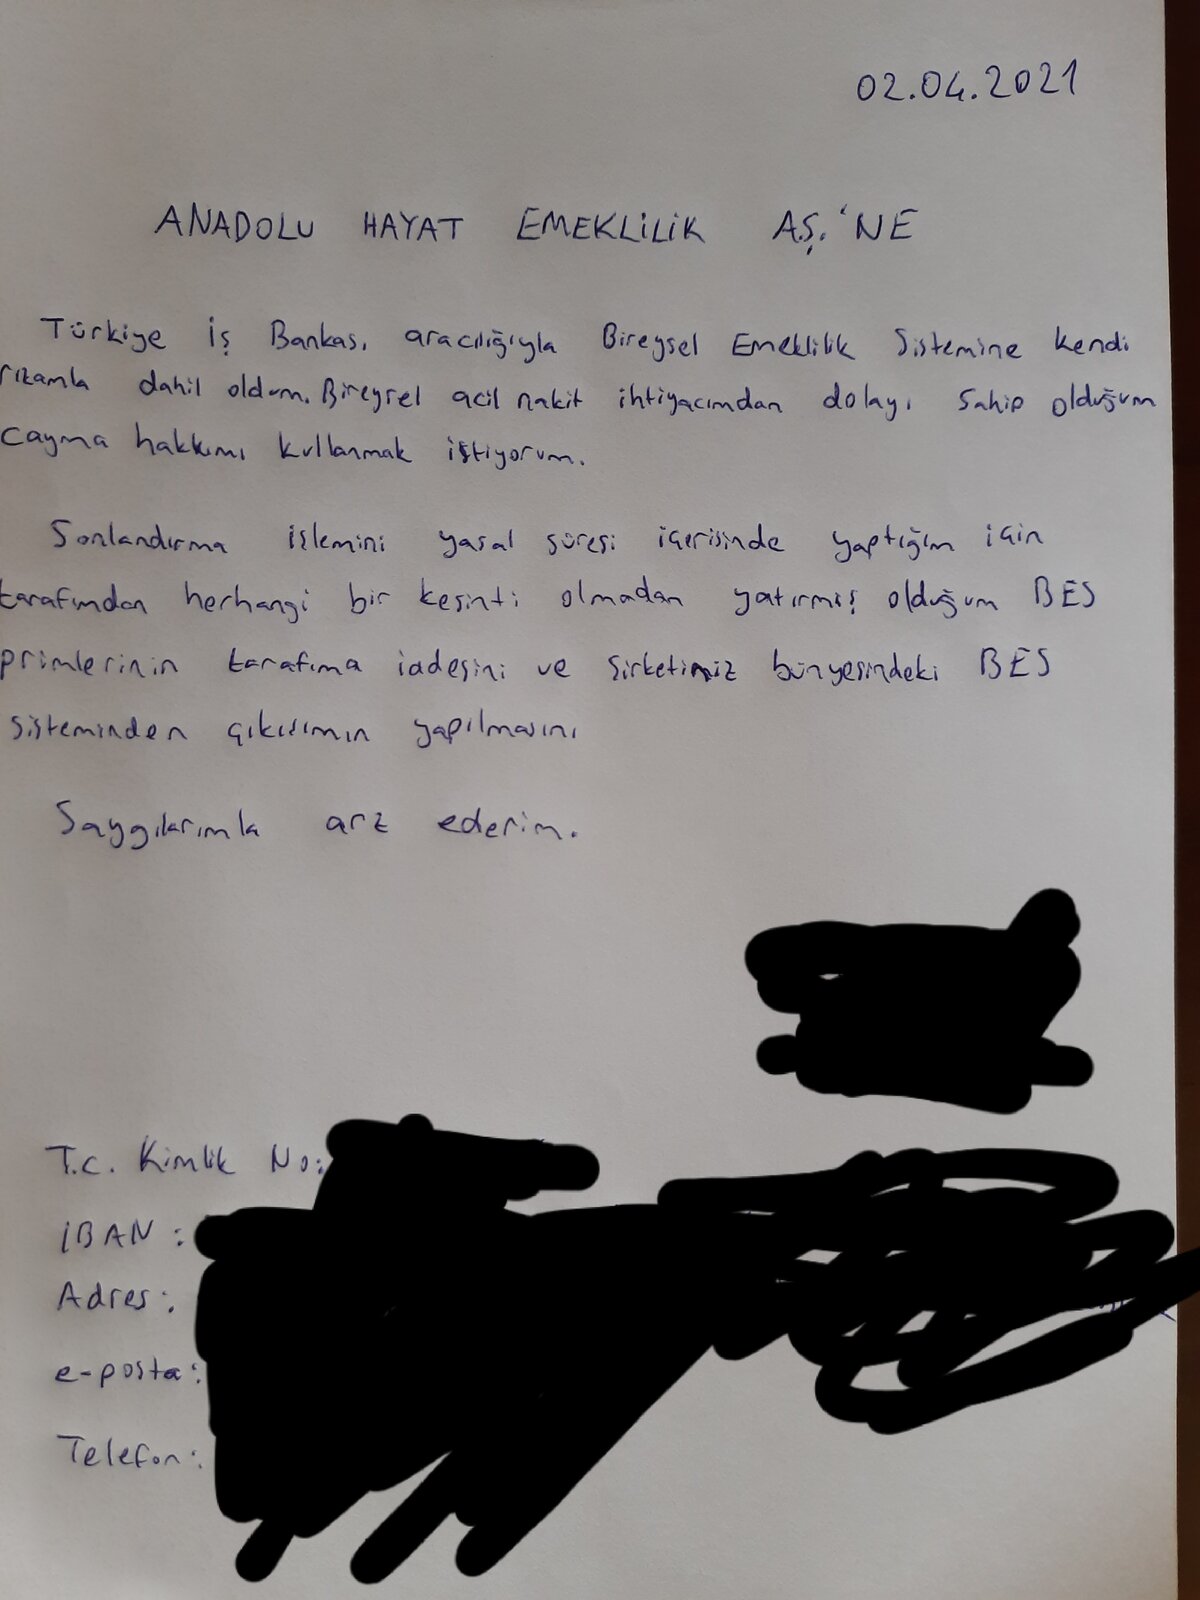 02.04.2021
ANADOLU HAYAT EMEKLİLİK A.Ş.'NE
Türkiye İş Bankası aracılığıyla Bireysel Emeklilik Sistemine kendi
rızamla dahil oldum. Bireysel acil nakit ihtiyacımdan dolayı sahip olduğum
cayma hakkımı kullanmak istiyorum.
Sonlandırma işlemini yasal süresi içerisinde yaptığım için
tarafımdan herhangi bir kesinti olmadan yatırmış olduğum BES
primlerinin tarafıma iadesini ve şirketimiz bünyesindeki BES
sisteminden çıkışımın yapılmasını
Saygılarımla arz ederim.
T.C. Kimlik No:
IBAN :
Adres :
e-posta :
Telefon :